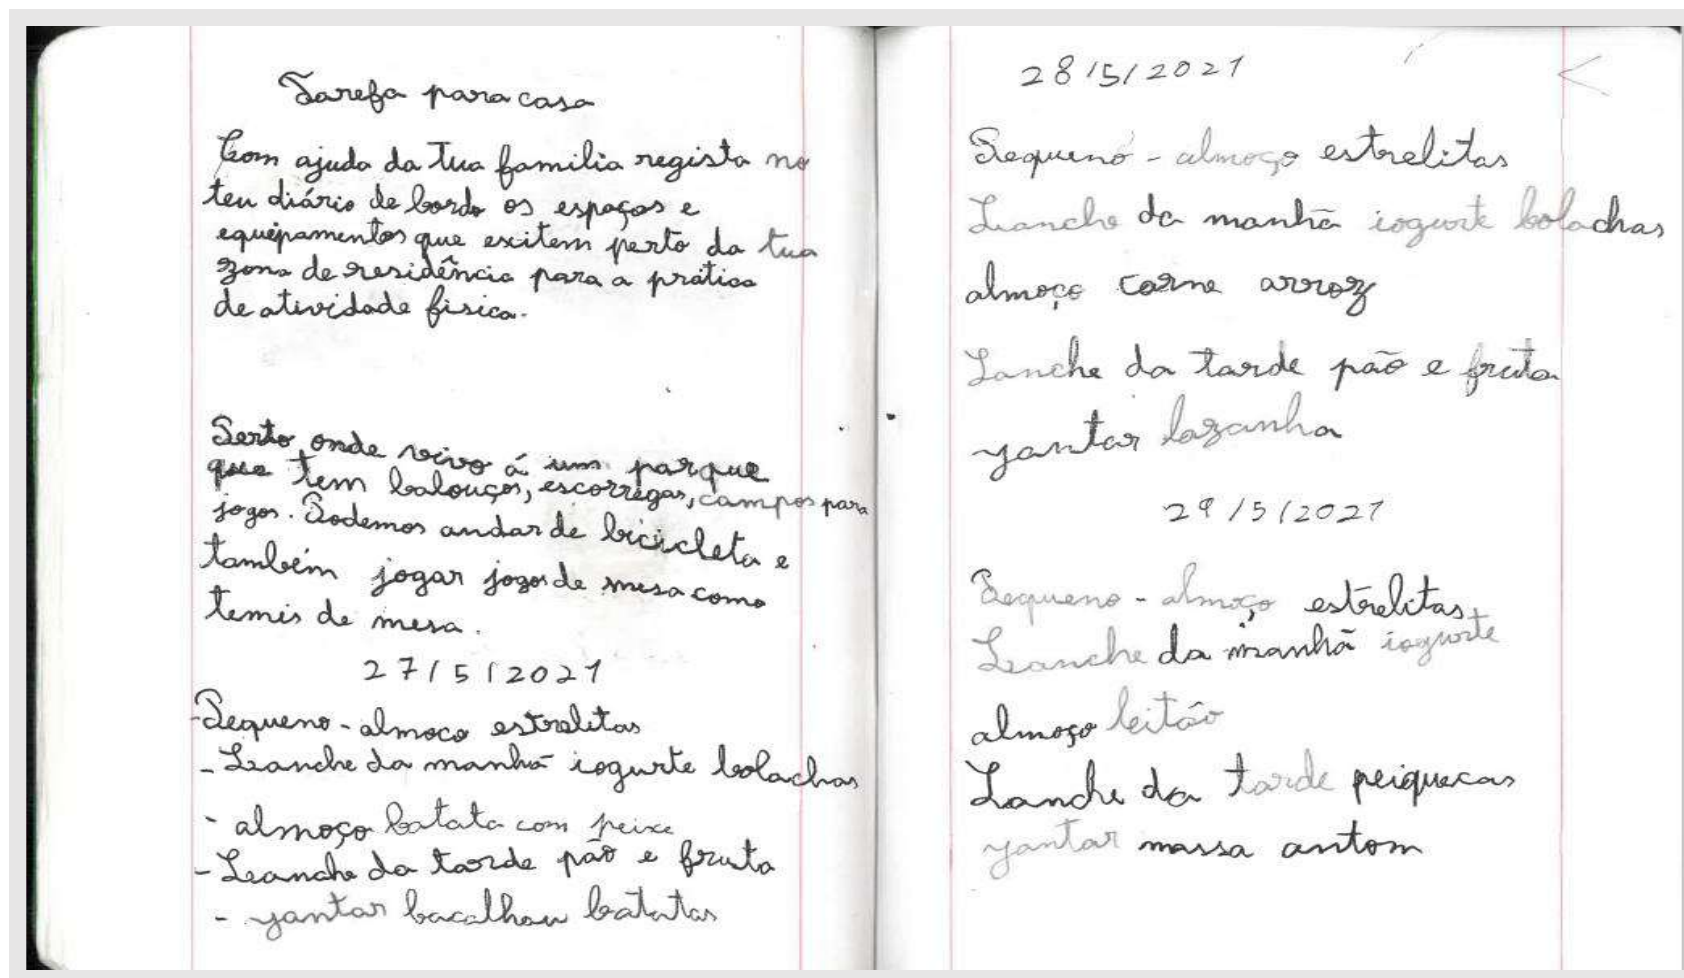 Tarefa para casa
Com ajuda da tua familia regista no
teu diário de bordo os espaços e
equipamentos que exitem perto da tua
zona de residência para a prática
de atividade fisica.
Perto onde vivo á um parque
que tem balouços, escorregas, campos para
jogos. Podemos andar de bicicleta e
também jogar jogos de mesa como
temis de mesa.
27/5/2021
-Pequeno-almoco estrelitas
- Leanche da manhã iogurte bolachas
- almoço batata com peixe
- Leanche da tarde pão e fruta
- yantar bacalhau batatas
28/5/2021
Pequeno-almoço estrelitas
Leanche da manhã iogurte bolachas
almoço carne arroz
Lanche da tarde pão e fruta
yantar lazanha
29/5/2021
Pequeno-almoço estrelitas
Leanche da manhã iogurte
almoço leitão
Lanche da tarde peiquecas
yantar massa antom